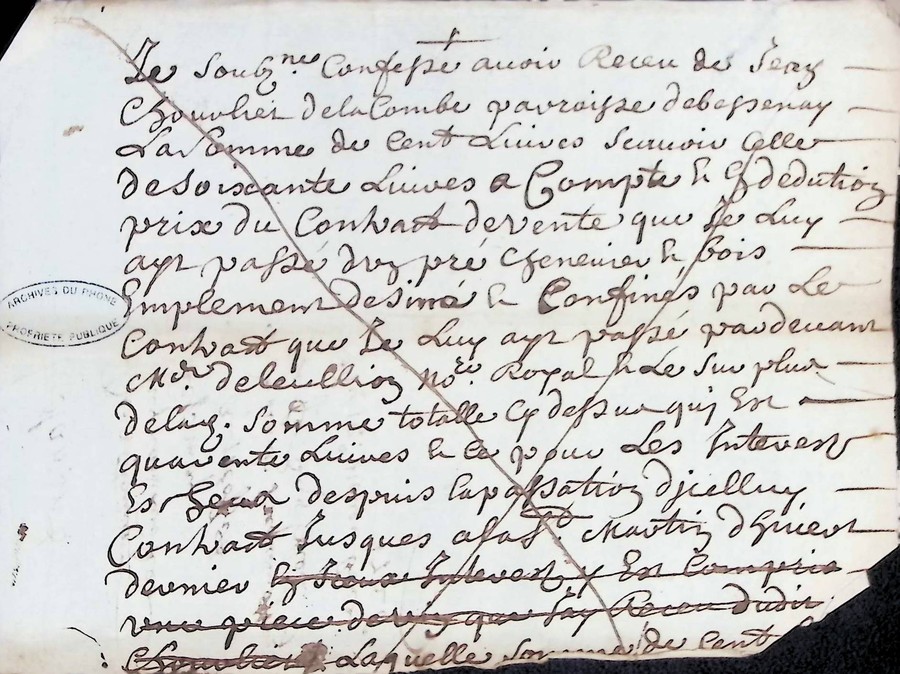 Je Soubz.ne Confesse auoir Receu de Jean
Chouvliet delaCombe parroisse debessenay
La Somme de Cent Liures scauoir Celle
desoixante Liures a Compte & dedution
prix du Contract devente que Je Luy
ay passé d'un pré Chenevier & bois
Emplement desiné & Confinés par Le
Contract que Je Luy ay passé pardeuant
Me. No.re Royal & Le Surplus
delad. Somme totalle Cy dessus quy Est
quarente Liures & Ce pour Les Interest
Escheus despuis lapassation d'jcelluy
Contract Jusques a la St. Martin d'hivert
dernier Interest y Est Compris
une piece de vin que J'ay Receu dudit
Laquelle Somme de Cent
ARCHIVES DU RHONE
PROPRIETE PUBLIQUE